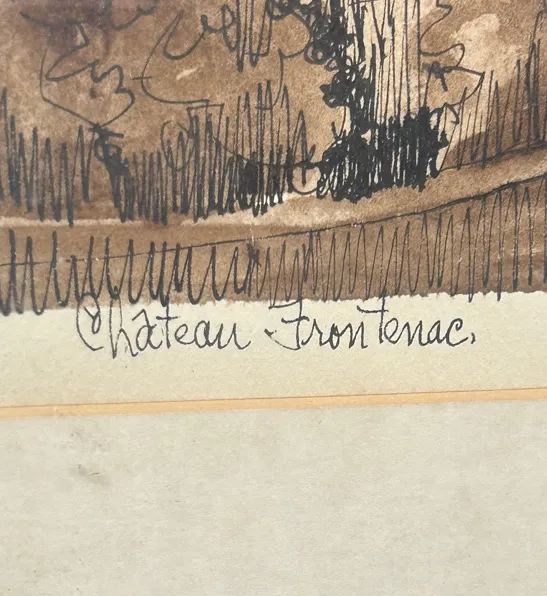 Château Frontenac.